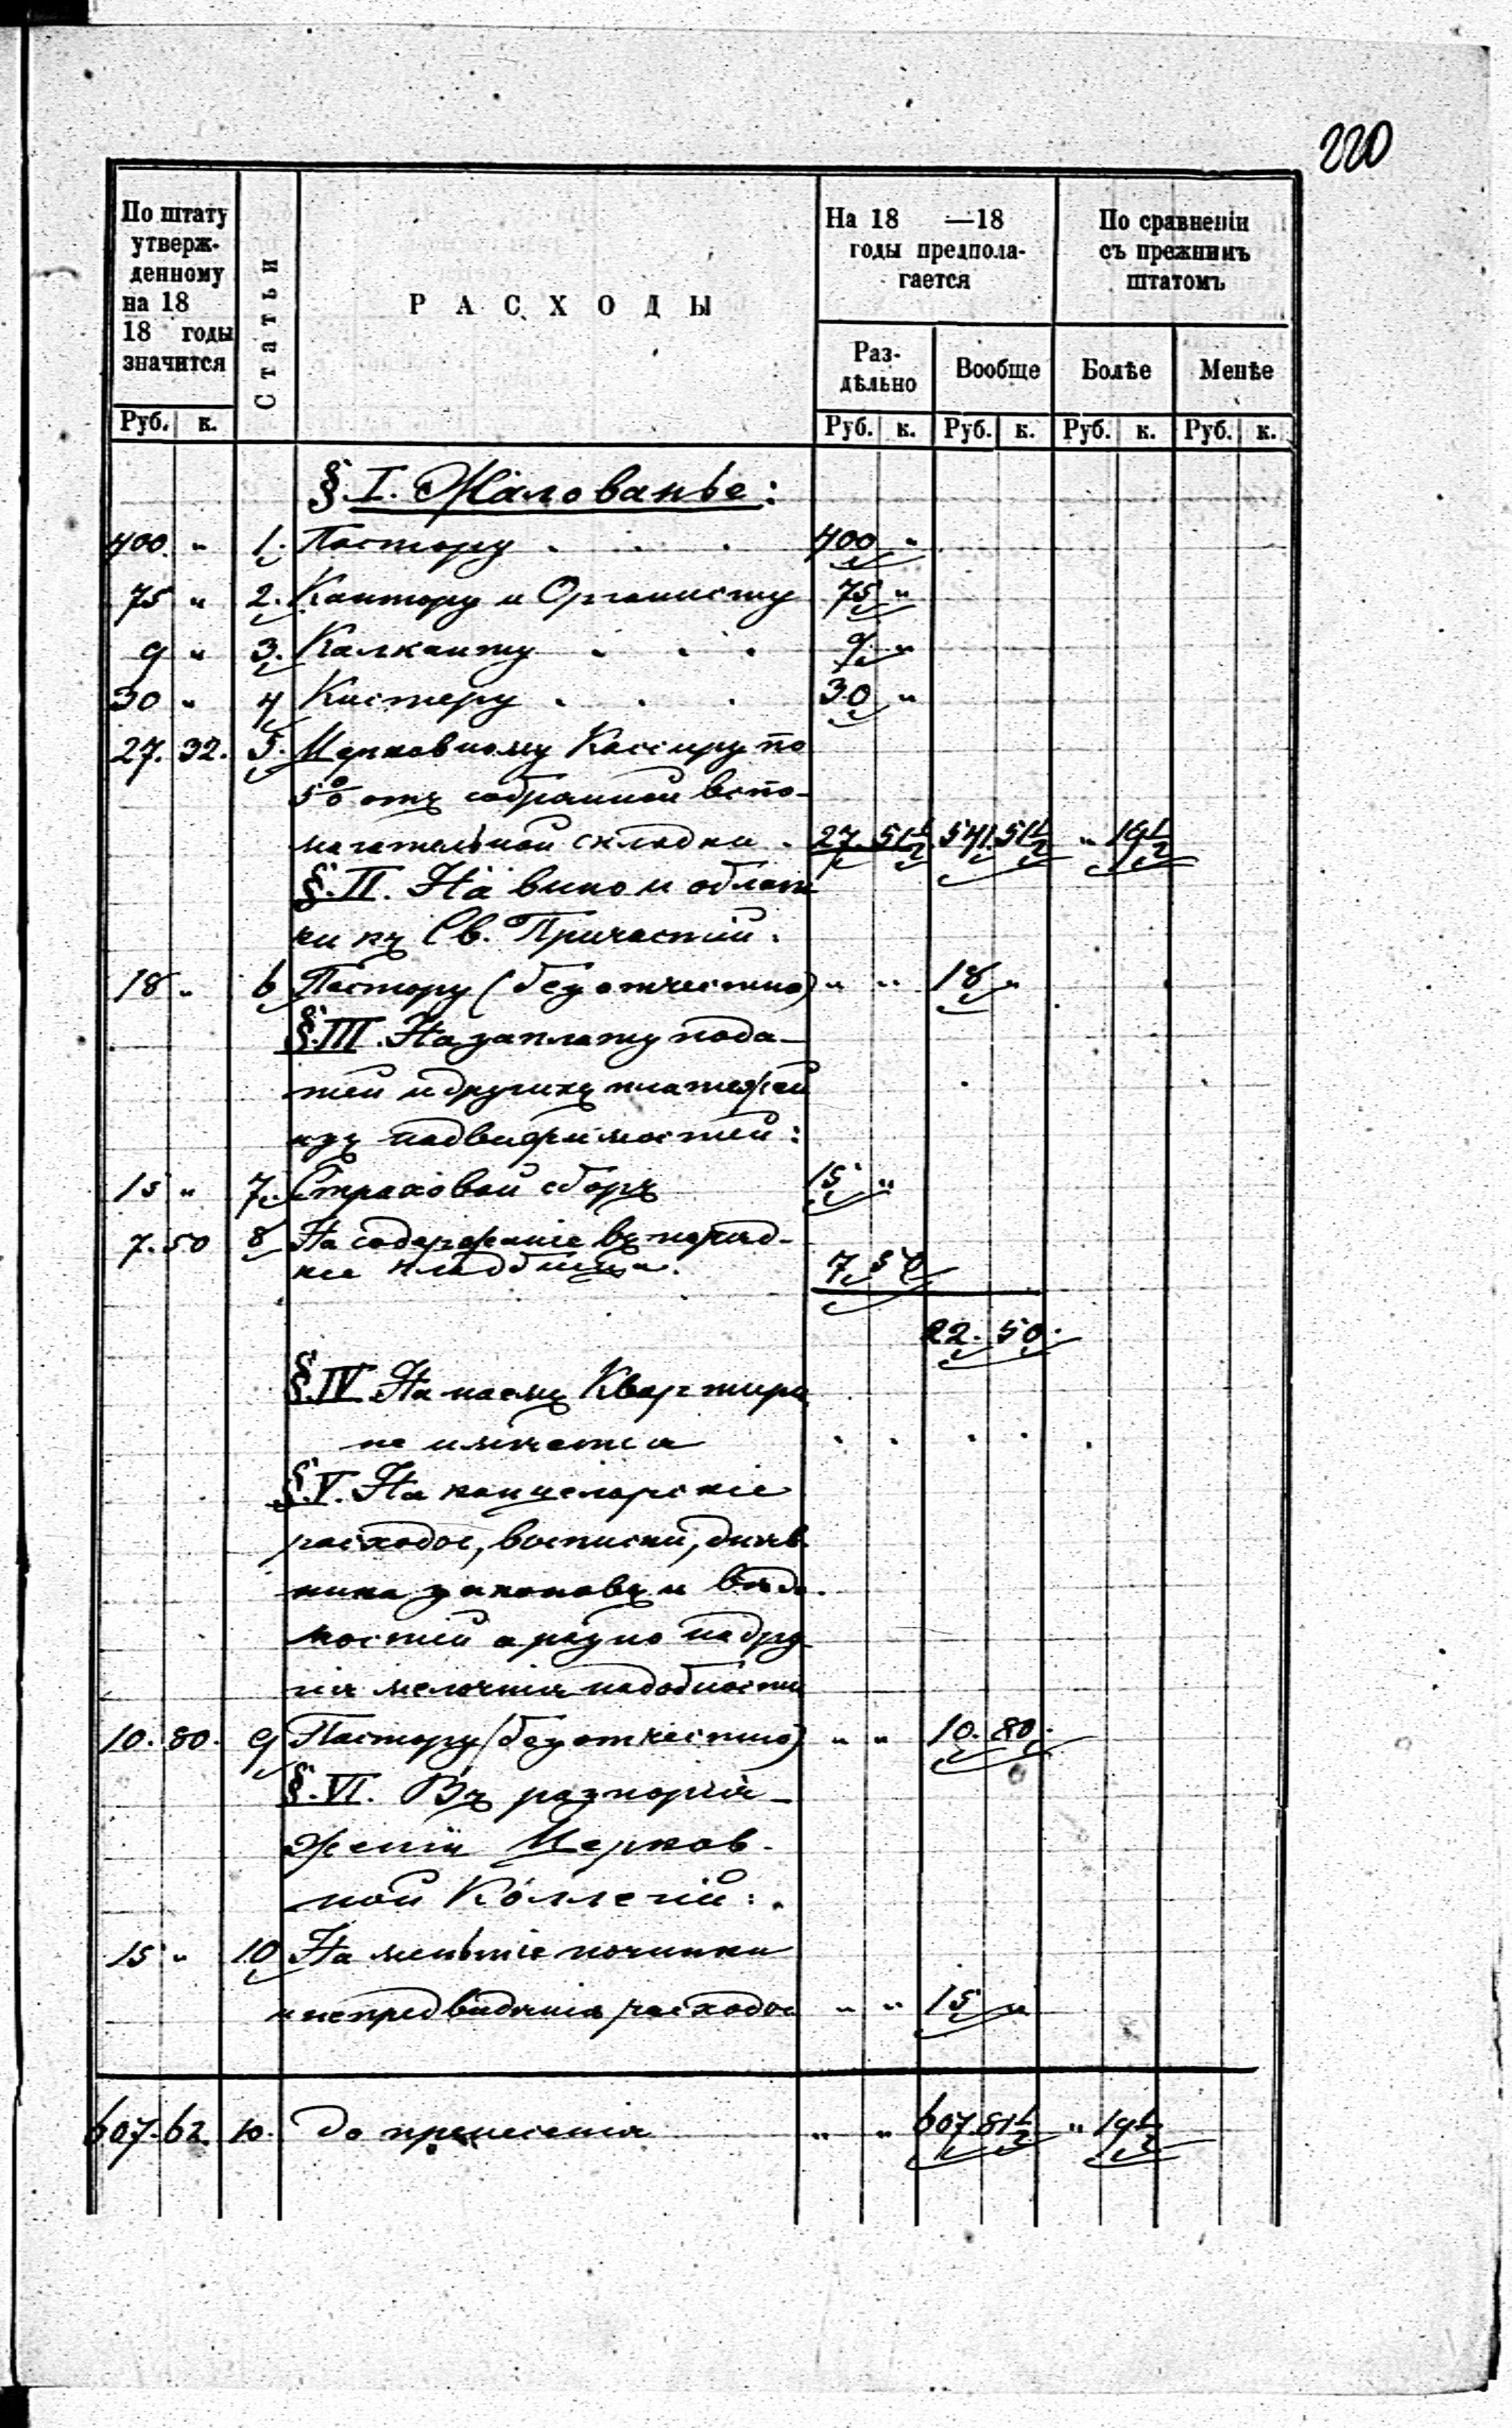 220
По штату утверж-денному на 18 18 годы значится
Статьи
РАСХОДЫ
На 18 —18 годы предпола-гается
По сравненіи съ прежнимъ штатомъ
Раз-дѣльно Вообще Болѣе Менѣе
Руб. к. Руб. к. Руб. к. Руб. к. Руб. к.
§. I. Жалованье:
400 „ 1. Пастору . . . 400 „
75 „ 2. Кантору и Органисту 75 „
9 „ 3. Калканту . . . 9 „
30 „ 4 Кистеру . . . 30 „
27. 32. 5. Церковному Кассиру по
5% отъ собранной вспо-
могательной складки . 27. 51½ 541. 51½ „ 19½
§. II. На вино и облат
ки къ Св. Причастій.
18 „ 6 Пастору (безотчестно) „ „ 18 „
§. III. На заплату пода-
тей и другихъ платежей
изъ надвижимостей:
15 „ 7. Страховой сборъ 15 „
7. 50 8 На содержаніе въ поряд-
ке кладбища. 7. 50
22. 50.
§. IV. На наемъ Квартира
не имѣется
§. V. На канцелярскіе
расходы, выписки, днев
ника законовъ и Вѣдо-
мостей а разно на дру
гія мелочнія надобности
10. 80. 9 Пастору (безотчестно) „ „ 10. 80.
§. VI. Въ разпоря-
женіи Церков-
ной Коллегій:
15 „ 10 На меньшіе починки
и непредвидѣнія расходы „ „ 15 „
607. 62. 10. До пренесенія „ „ 607. 81½ „ 19½